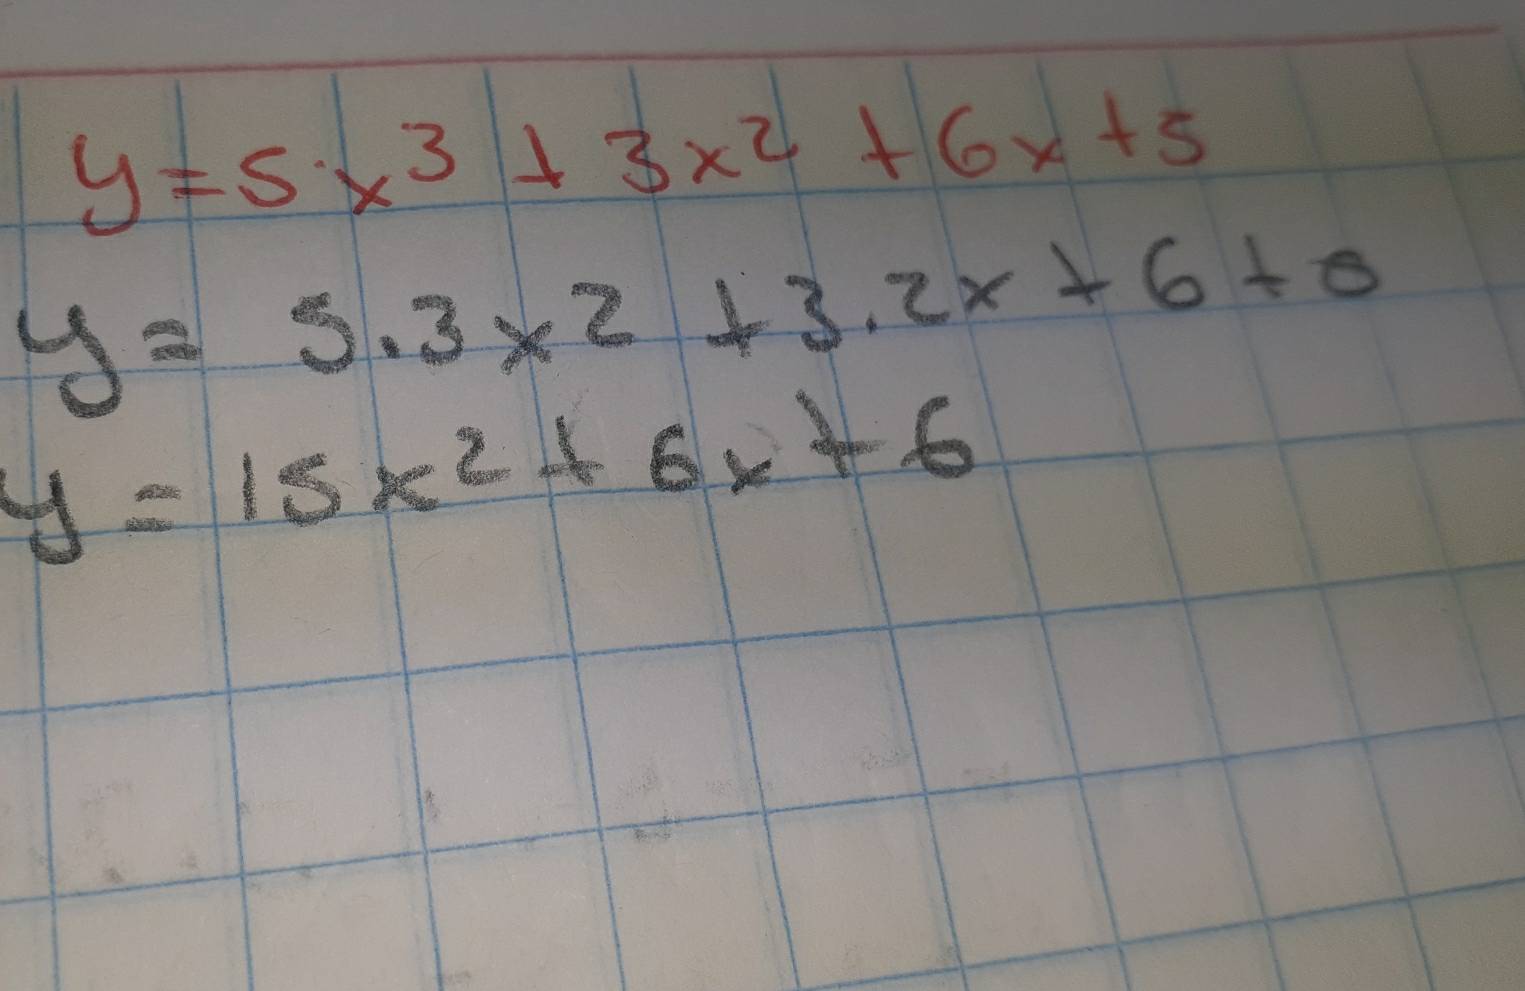 y = 5·x³ + 3x² + 6x + 5
y = 5.3x2 + 3.2x + 6 + 0
y = 15x² + 6x + 6